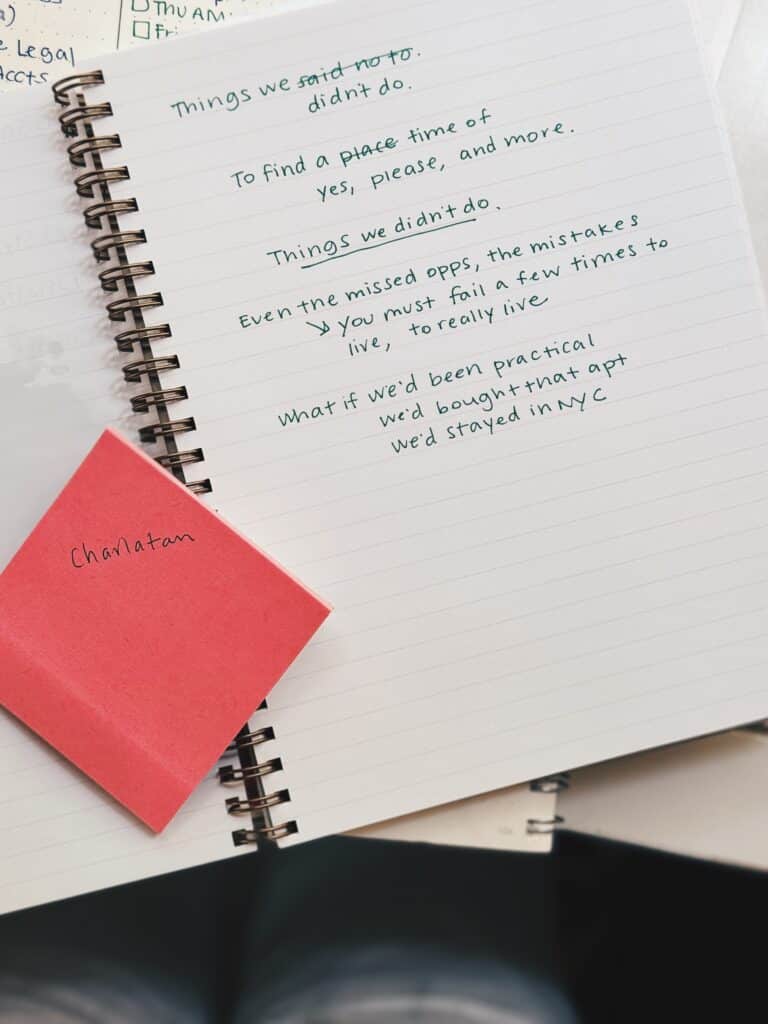 THU AM
Fri
Legal
Accts
Things we said no to.
didn't do.
To find a place time of
yes, please, and more.
Things we didn't do.
Even the missed opps, the mistakes
↘ you must fail a few times to
live, to really live
What if we'd been practical
we'd bought that apt
we'd stayed in NYC
Charlatan